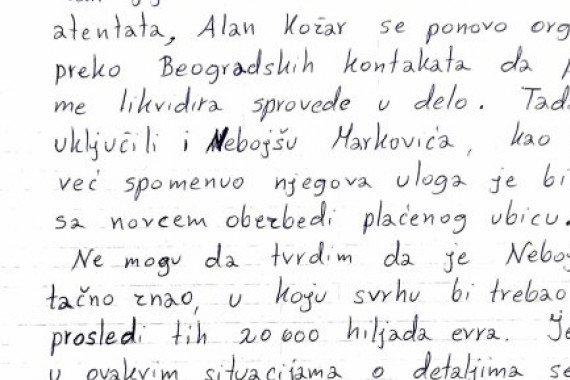 atentata, Alan Kožar se ponovo org
preko Beogradskih kontakata da
me likvidira sprovede u delo. Tad
uključili i Nebojšu Markovića, kao
već spomenuo njegova uloga je bi
sa novcem obezbedi plaćenog ubicu.
Ne mogu da tvrdim da je Nebo
tačno znao, u koju svrhu bi trebao
prosledi tih 20 000 hiljada evra. Je
u ovakvim situacijama o detaljima se